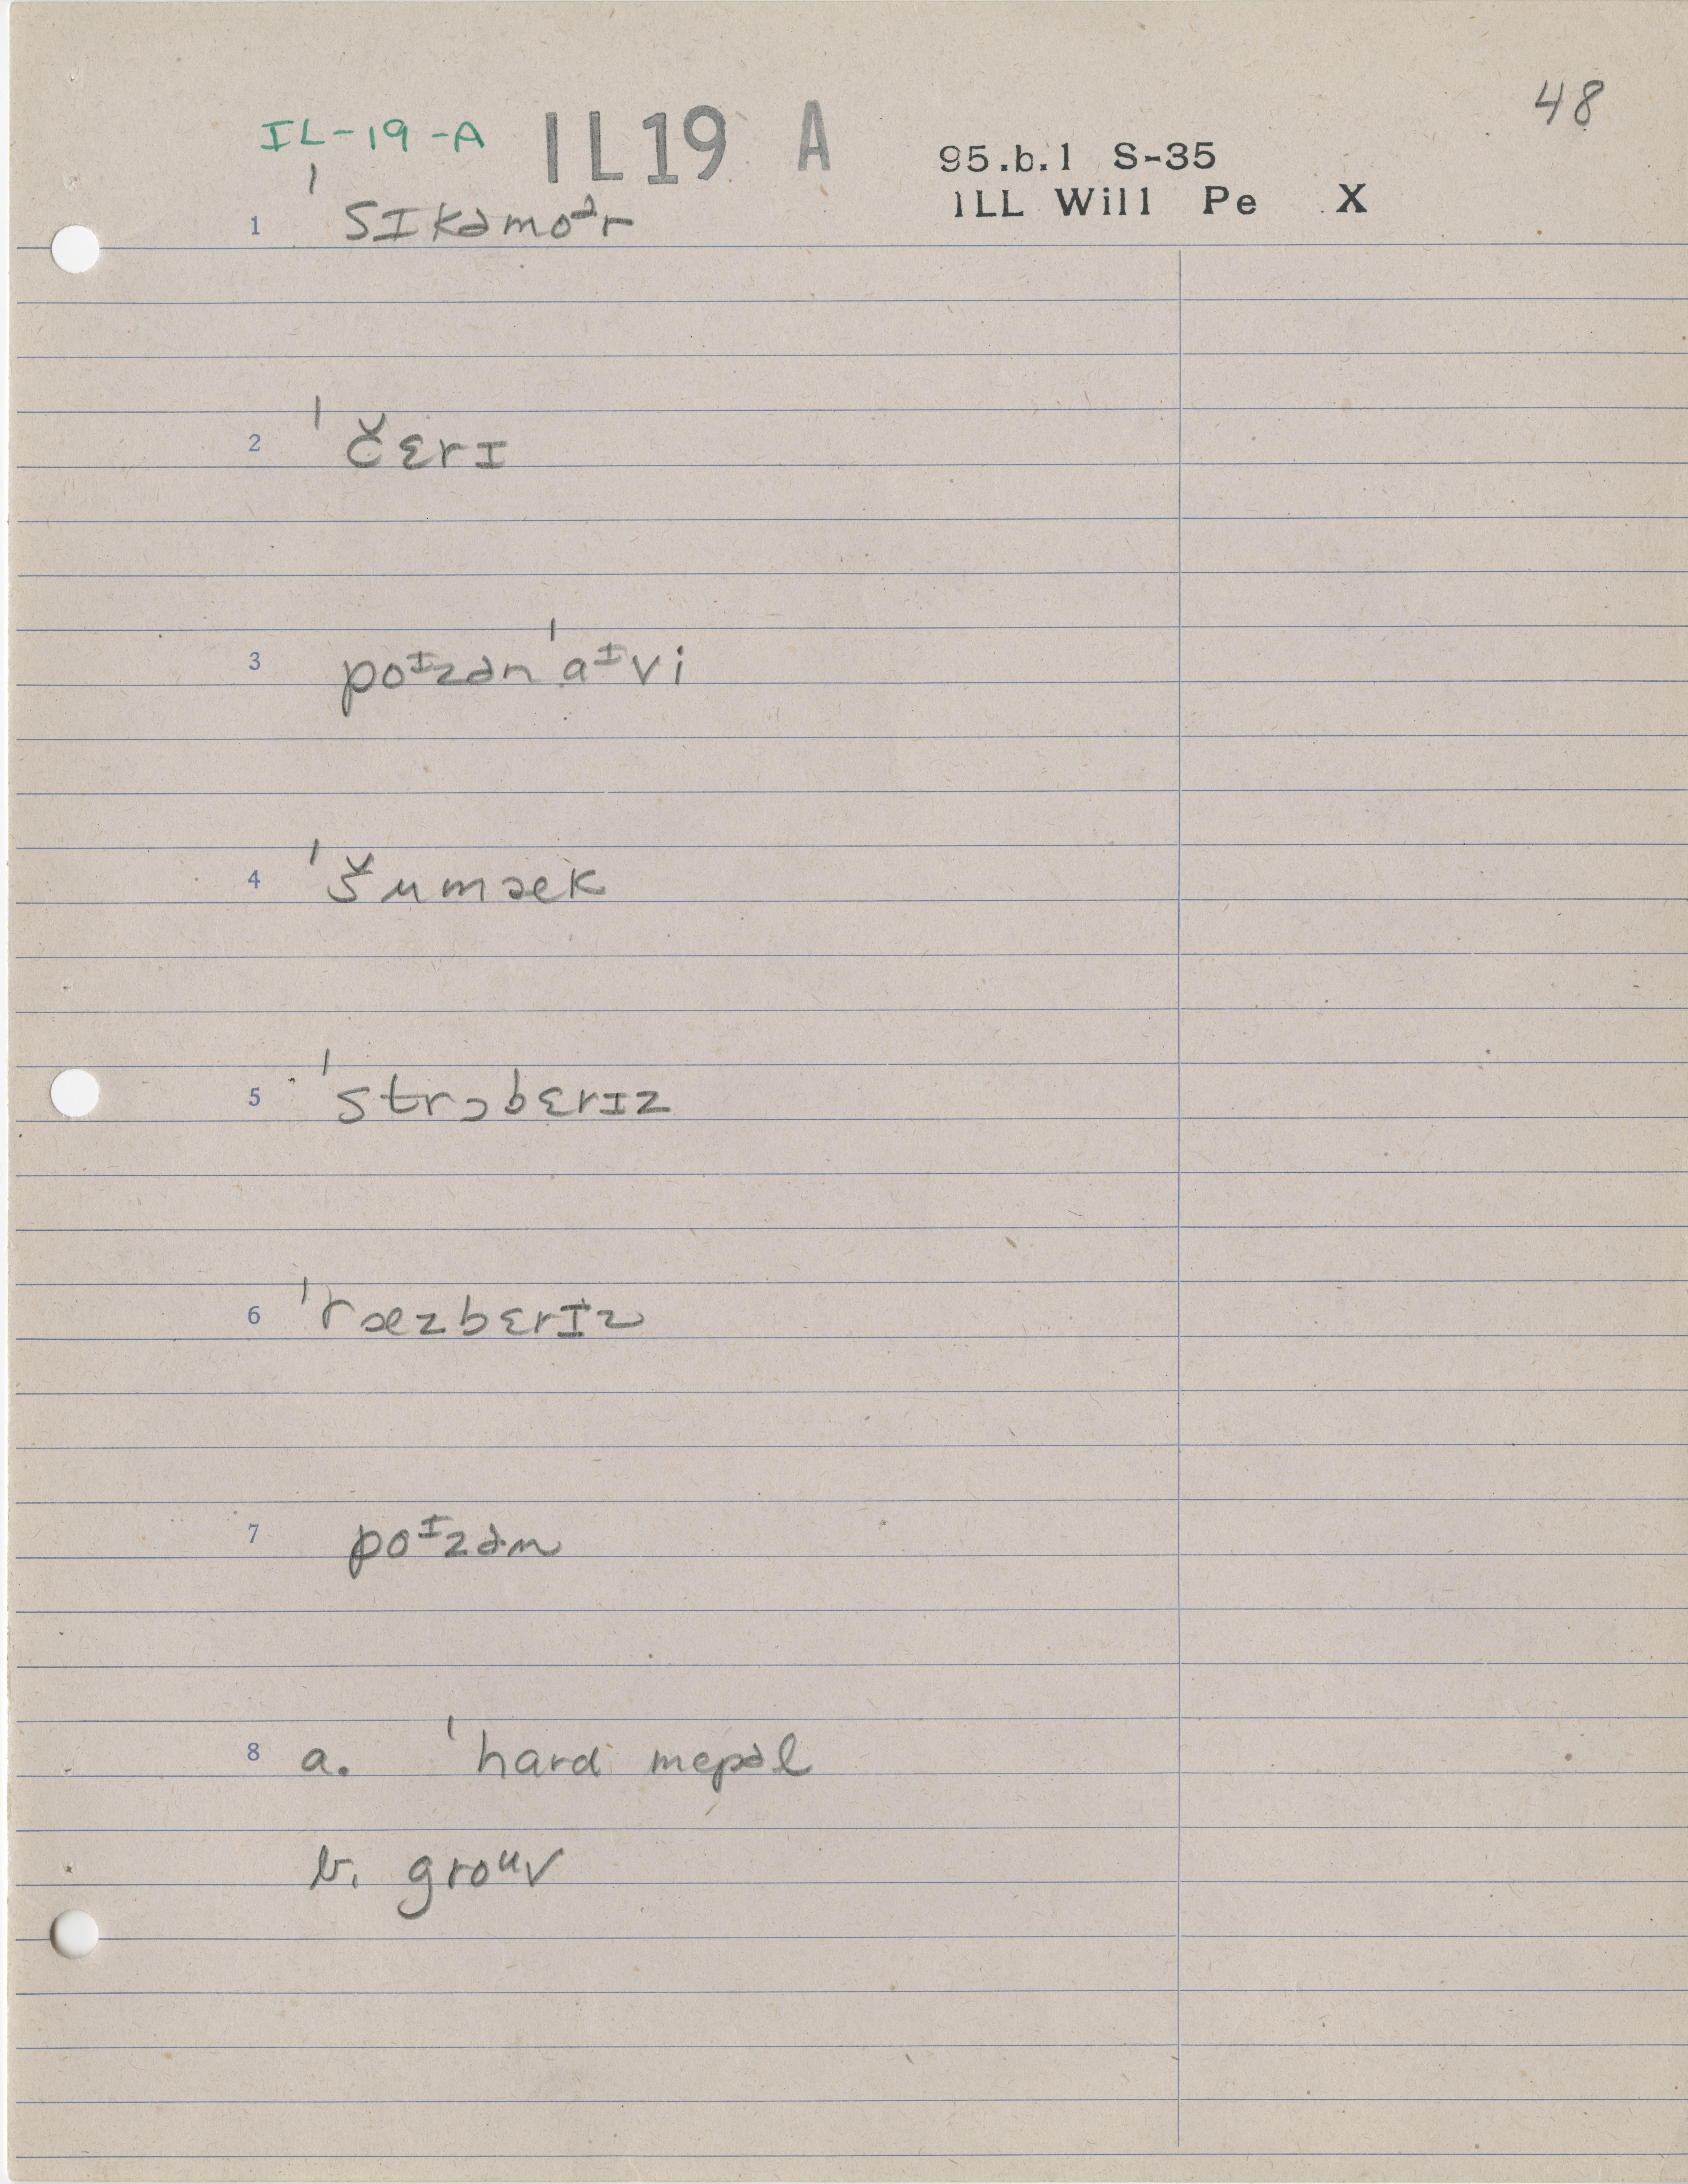 48
IL-19-A IL19 A 95.b.1 S-35
ILL Will Pe X
1 ˈsɪkəmoᵊr
2 ˈčɛrɪ
3 poᶦzənˈaᶦvi
4 ˈšumæk
5 ˈstrɔbɛrɪz
6 ˈræzbɛrɪz
7 poᶦzən
8 a. ˈhard mepəl
b. groᵘv